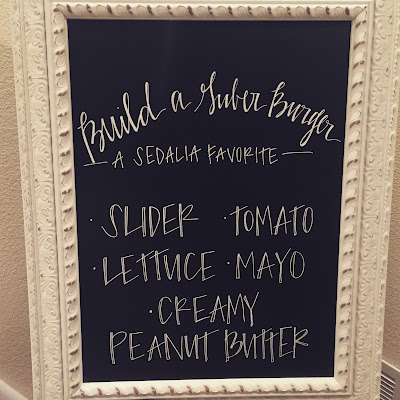 Build a Guber Burger
— A SEDALIA FAVORITE —
· SLIDER · TOMATO
· LETTUCE · MAYO
· CREAMY
PEANUT BUTTER